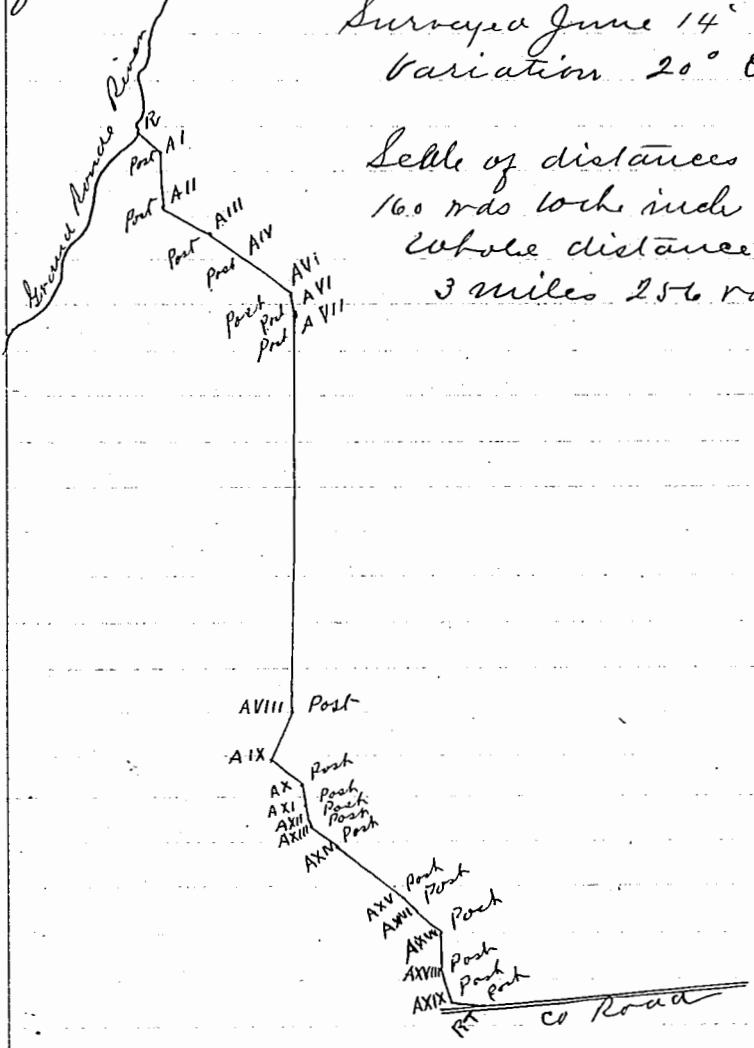 Surveyed June 14
Variation 20°
Scale of distances
160 rods to the inch
Whole distance
3 miles 256
Grand Ronde River
R
Post A I
Post A II
Post A III
Post A IV
A VI
Post A VI
Post A VII
Post
A VIII Post
A IX
Post
A X Post
A XI Post
A XII Post
A XIII Post
A XIV
Post
A XV Post
A XVI
Post
A XVII
Post
A XVIII Post
A XIX Post
RT
Co Road